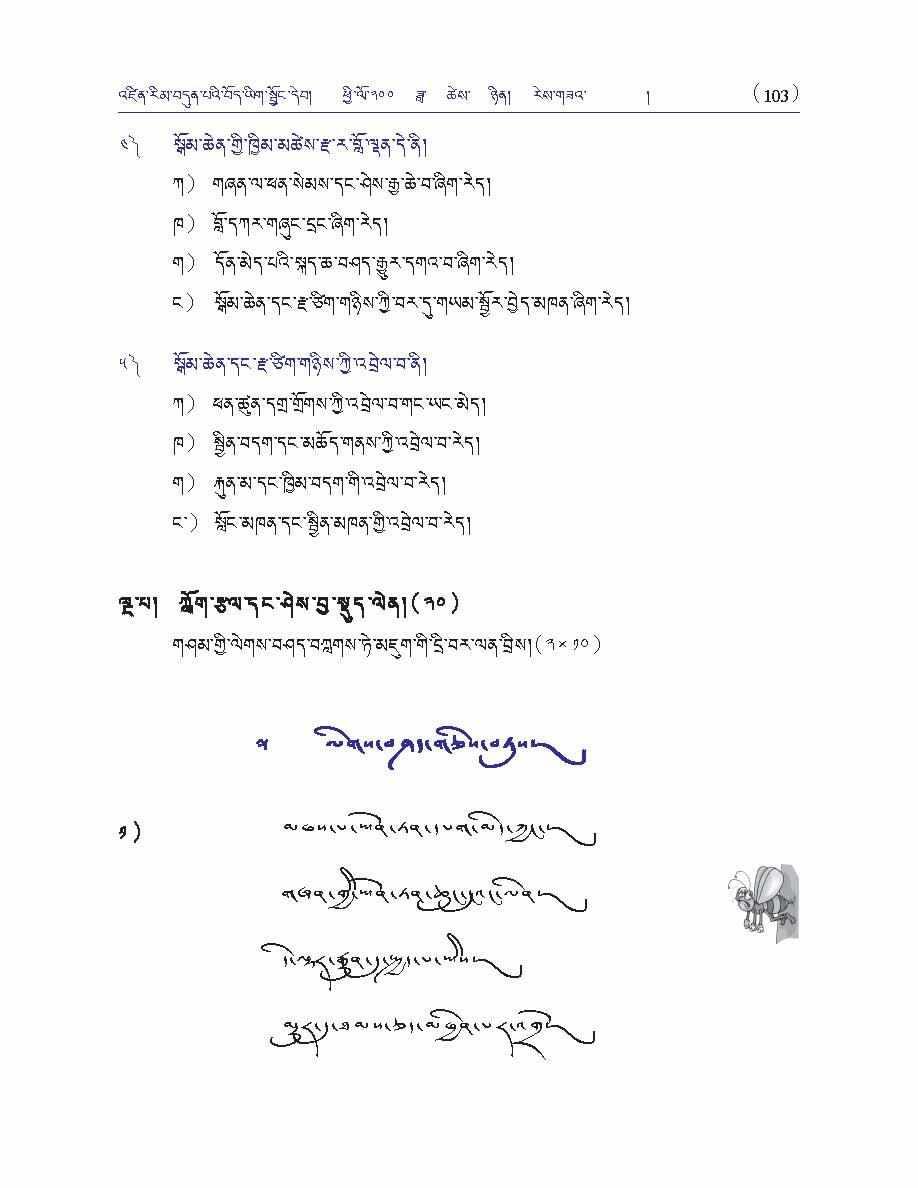 འཛིན་རིམ་བདུན་པའི་བོད་ཡིག་སྦྱོང་དེབ། ཕྱི་ལོ་༢༠༠ ཟླ་ ཚེས་ ཉིན། རེས་གཟའ་ ། (103)
༤༽ སྒོམ་ཆེན་གྱི་ཁྱིམ་མཚེས་རྫ་ར་བློ་ལྡན་དེ་ནི།
ཀ) གཞན་ལ་ཕན་སེམས་དང་ཤེས་རྒྱ་ཆེ་བ་ཞིག་རེད།
ཁ) བློ་དཀར་གཞུང་དྲང་ཞིག་རེད།
ག) དོན་མེད་པའི་སྐད་ཆ་བཤད་རྒྱུར་དགའ་བ་ཞིག་རེད།
ང) སྒོམ་ཆེན་དང་རྫ་ཙིག་གཉིས་ཀྱི་བར་དུ་གཡམ་སྦྱོར་བྱེད་མཁན་ཞིག་རེད།
༥༽ སྒོམ་ཆེན་དང་རྫ་ཙིག་གཉིས་ཀྱི་འབྲེལ་བ་ནི།
ཀ) ཕན་ཚུན་དགྲ་གྲོགས་ཀྱི་འབྲེལ་བ་གང་ཡང་མེད།
ཁ) སྦྱིན་བདག་དང་མཆོད་གནས་ཀྱི་འབྲེལ་བ་རེད།
ག) རྐུན་མ་དང་ཁྱིམ་བདག་གི་འབྲེལ་བ་རེད།
ང་) སློང་མཁན་དང་སྦྱིན་མཁན་གྱི་འབྲེལ་བ་རེད།
ལྔ་པ། ཀློག་རྩལ་དང་ཤེས་བྱ་སྡུད་ལེན།(༢༠)
གཤམ་གྱི་ལེགས་བཤད་བཀླགས་ཏེ་མཇུག་གི་དྲི་བར་ལན་བྲིས།(༢×༡༠)
༡)